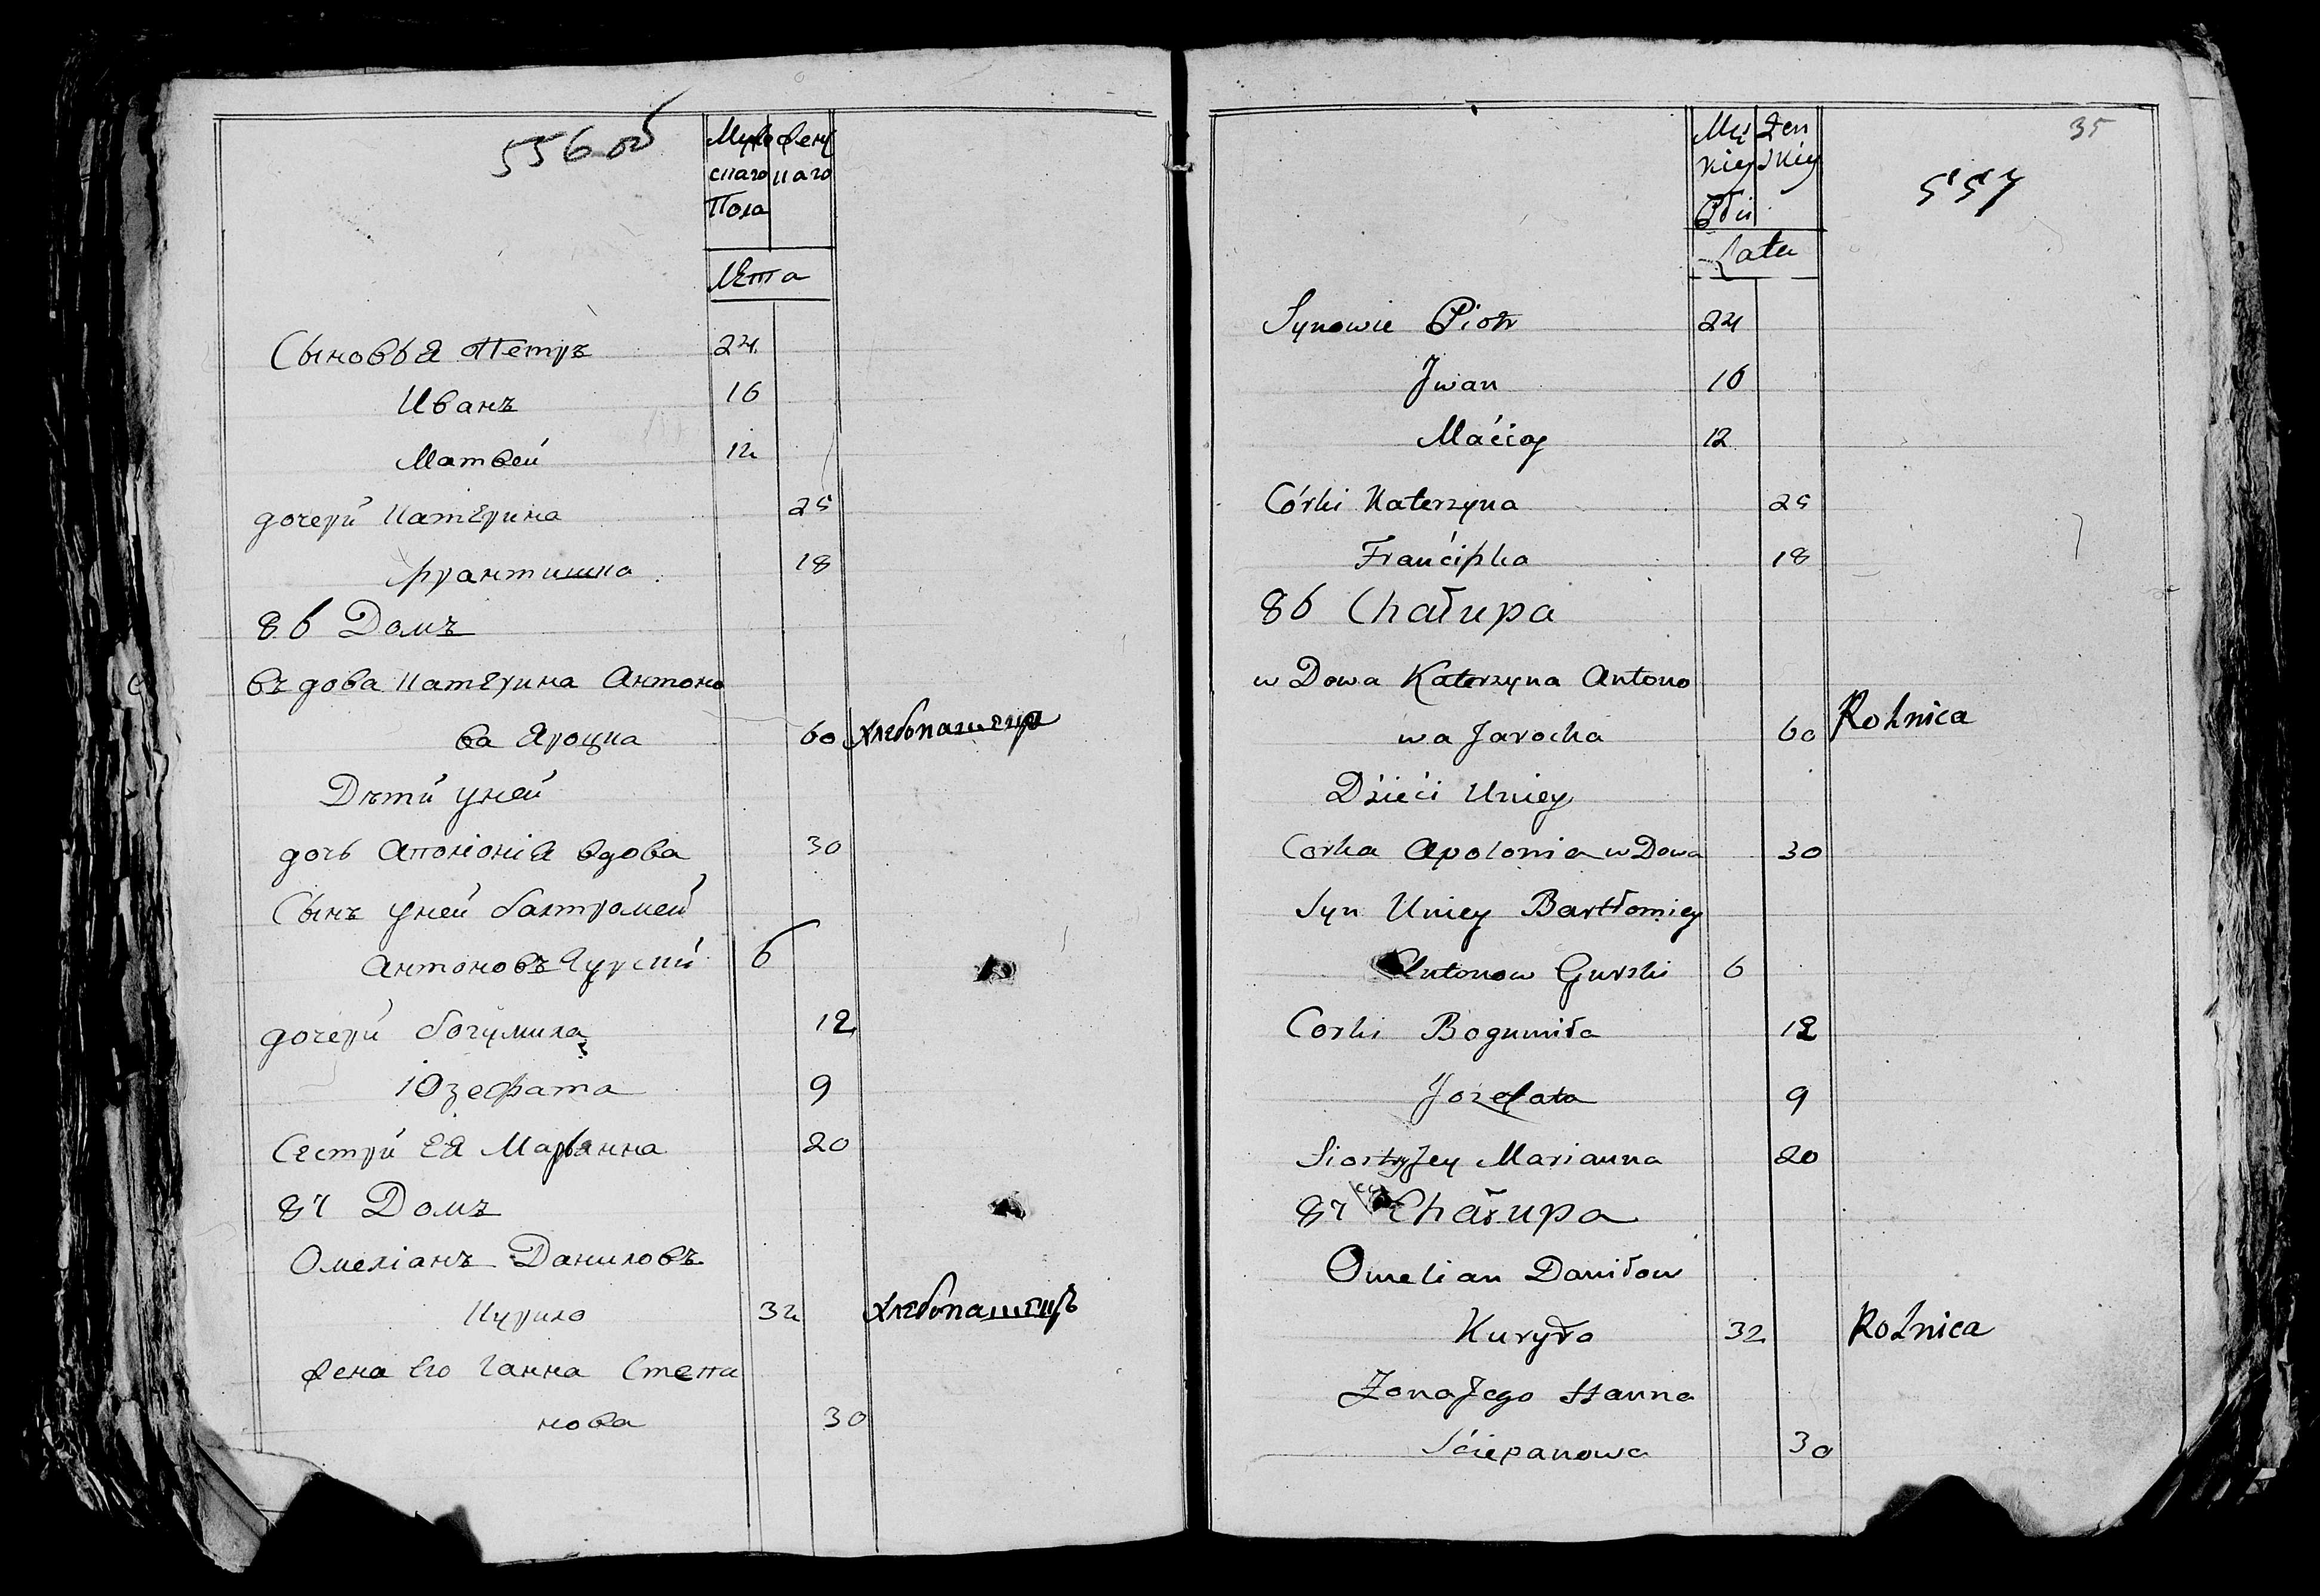 556 об
Муж Жен
скаго скаго
Пола
Лѣта
Сыновья Петръ 24
Иванъ 16
Матвей 12
дочери Катерина 25
Франтишка 18
86 Домъ
въдова Катерина Антоно
ва Яроцка 60 Хлебопашецъ
Дѣти уней
дочь Аполонія вдова 30
Сынъ уней Балтромей
Антоновъ Гурский 6
дочери Богумила 12
Юзефата 9
Сестри Ея Марьянна 20
87 Домъ
Омеліанъ Даниловъ
Курило 32 Хлебопашецъ
Жена Его Ганна Степа
нова 30
35
557
Mę Żen
skiey skiey
Płci
Lata
Synowie Piotr 24
Jwan 16
Maćiey 12
Córki Katerzyna 25
Franćiszka 18
86 Chałupa
wDowa Katerzyna Antono
wa Jarocka 60 Rolnica
Dźieći Uniey
Corka Apolonia wDowa 30
Syn Uniey Bartłomiey
Antonow Gurski 6
Corki Bogumiła 12
Jozefata 9
Siostry Jey Marianna 20
87 Chałupa
Omelian Daniłow
Kuryło 32 Rolnica
Żona Jego Hanna
Śćiepanowa 30